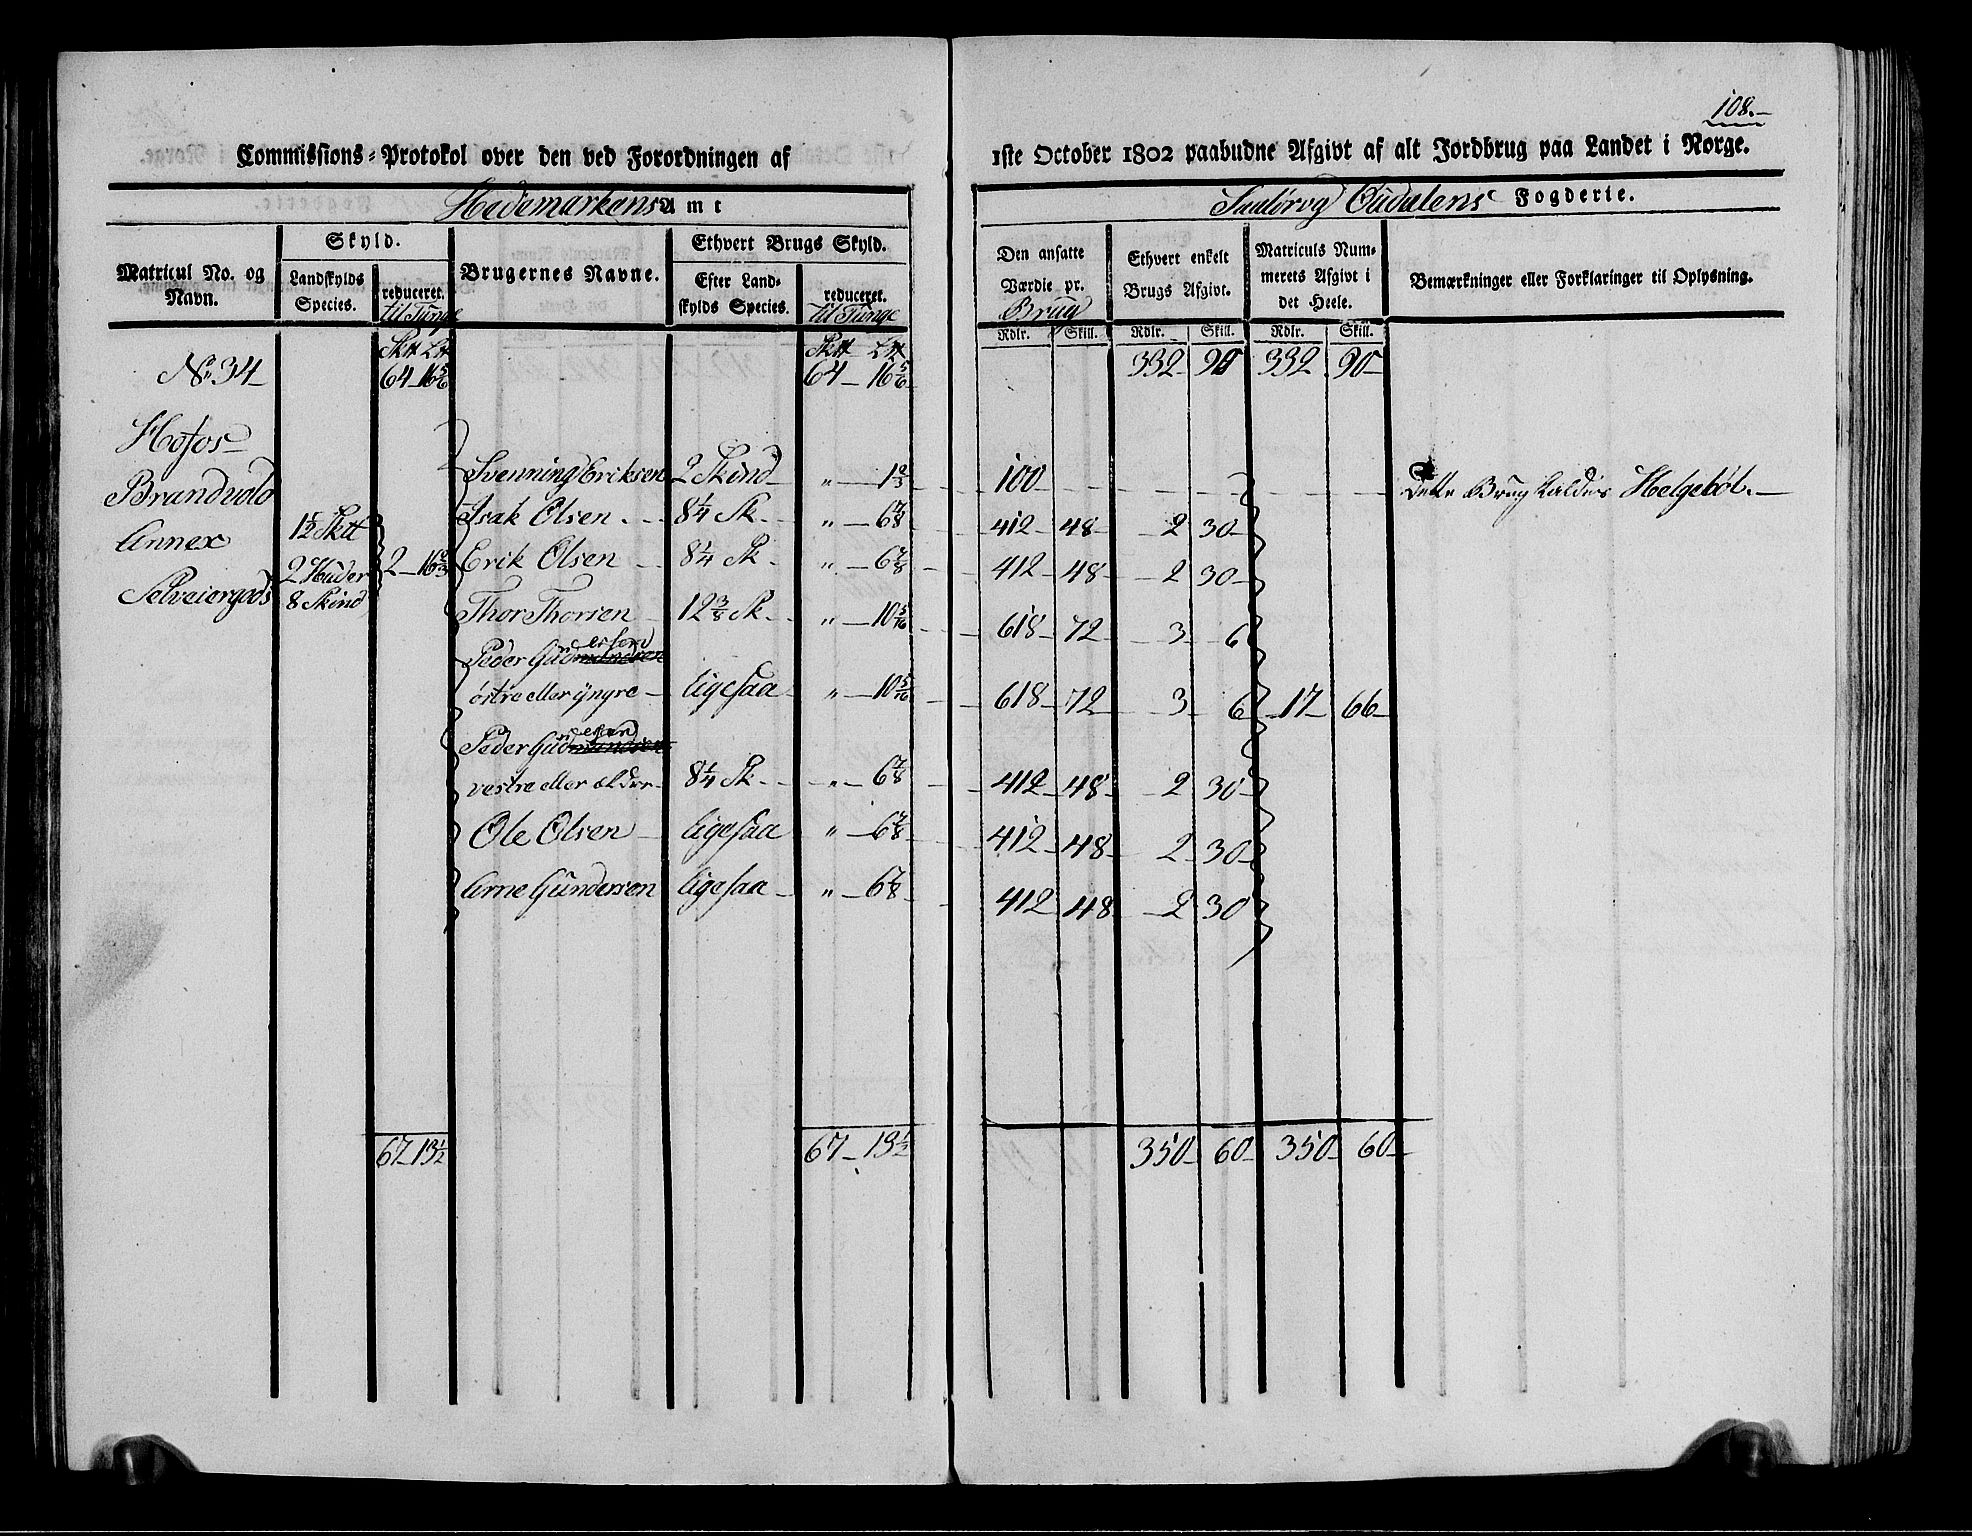 108.
Commissions-Protokol over den ved Forordningen af 1ste October 1802 paabudne Afgivt af alt Jordbrug paa Landet i Norge.
Hedemarkens Amt
Soelør og Oudalens Fogderie.
Matricul No. og Navn.
Skyld.
Landskylds Species.
reduceret. til Tunge
Brugernes Navne.
Ethvert Brugs Skyld.
Efter Landskylds Species.
reduceret. til Tunge
Den ansatte Værdie pr. Brug
Ethvert enkelt Brugs Afgivt.
Matriculs Nummerets Afgivt i det Heele.
Bemærkninger eller Forklaringer til Oplysning.
Rdlr. Skill. Rdlr. Skill. Rdlr. Skill.
Sk℔ L℔ Sk℔ L℔
No 34 64 16 5/6 64 16 5/6 332 90 332 90
Hofos
Brandvold
Annex
Selveiergods
1 1/2 Sk℔
2 Huder
8 Skind
2 16 2/3
Svenning Eriksen 2 Skind " 1 2/3 100 Dette Brug kaldes Helgebøl.
Isak Olsen 8 1/4 Sk. " 6 7/8 412 48 2 30
Erik Olsen 8 1/4 Sk " 6 7/8 412 48 2 30
Thor Thorsen 12 3/8 Sk " 10 5/16 618 72 3 6
Peder Gud
østre eller yngre ligesaa " 10 5/16 618 72 3 6 17 66
Peder Gud
vestre eller ældre 8 1/4 Sk " 6 7/8 412 48 2 30
Ole Olsen ligesaa " 6 7/8 412 48 2 30
Arne Gundersen ligesaa " 6 7/8 412 48 2 30
67 13 1/2 67 13 1/2 350 60 350 60